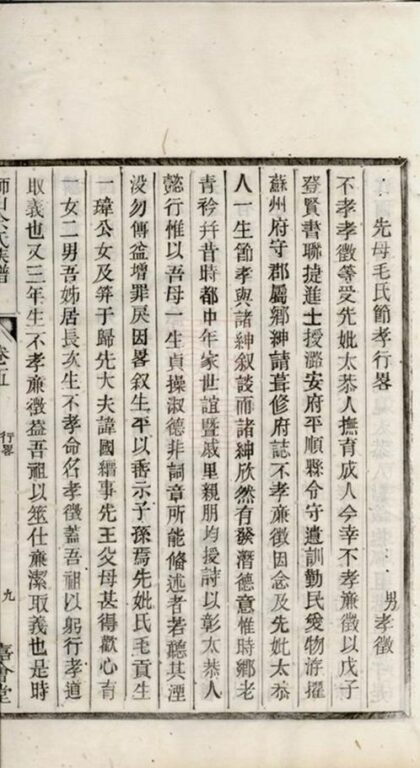 先母毛氏節孝行畧
男孝徵
不孝孝徵等受先妣太恭人撫育成人今幸不孝亷徵以戊子
登賢書聯捷進士授潞安府平順縣令守遺訓勤民愛物洊擢
蘇州府守郡屬鄉紳請葺修府誌不孝亷徵因念及先妣太恭
人一生節孝與諸紳叙談而諸紳欣然有發潛德意惟時鄉老
青衿幷昔時都中年家世誼暨戚里親朋均授詩以彰太恭人
懿行惟以吾母一生貞操淑德非詞章所能偹述者若聽其湮
没勿傳益增罪戾因畧叙生平以畨示子孫焉先妣氏毛貢生
一瑋公女及笄于歸先大夫諱國縉事先王父母甚得歡心育
一女二男吾姊居長次生不孝命名孝徵蓋吾祖以躬行孝道
取義也又三年生不孝亷徵葢吾祖以筮仕亷潔取義也是時
卷五
行畧
九